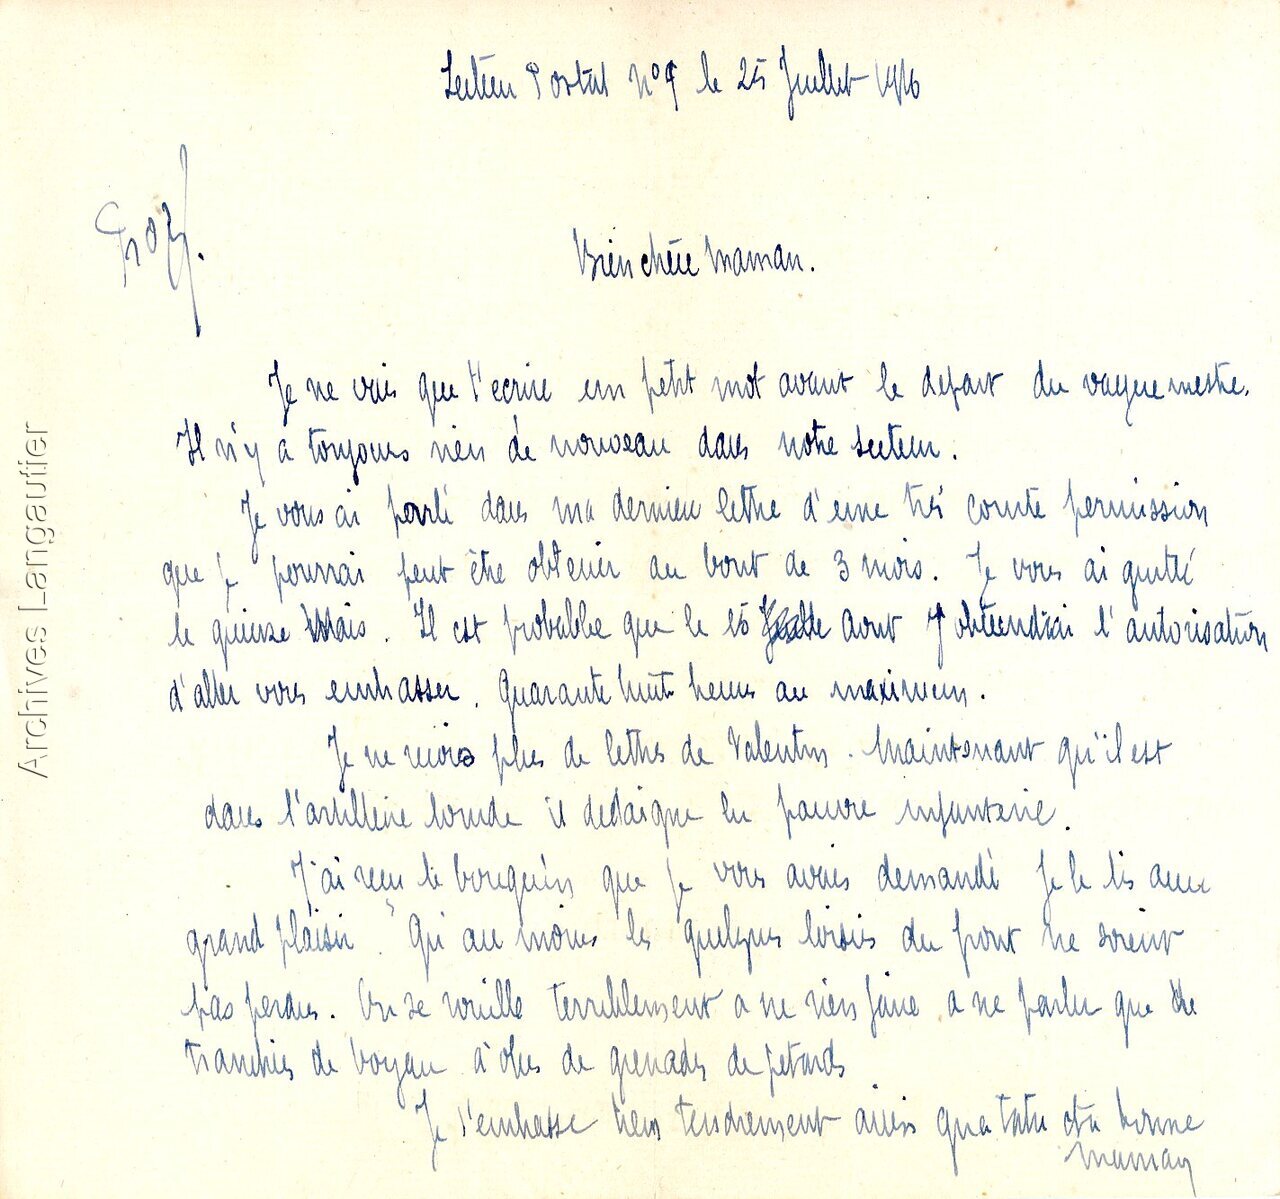 Secteur Postal N° 9 le 25 Juillet 1916
Bien chère Maman.
Je ne vais que t'ecrire un petit mot avant le depart du vaguemestre.
Il n'y a toujours rien de nouveau dans notre secteur.
Je vous ai parlé dans ma derniere lettre d'une très courte permission
que je pourrai peut être obtenir au bout de 3 mois. Je vous ai quitté
le quinze Mais. Il est probable que le 15 Aout j'obtiendrai l'autorisation
d'aller vous embrasser. Quarante huit heures au maximum.
Je ne reçois plus de lettres de Valentin. Maintenant qu'il est
dans l'artillerie lourde il dedaigne la pauvre infanterie.
J'ai reçu le bouquin que je vous avais demandé Je le lis avec
grand plaisir. Qu'au moins les quelques loisirs du front ne soient
pas perdus. On se rouille terriblement a ne rien faire a ne parler que de
tranchées de boyau d'obus de grenades de petards
Je t'embrasse bien tendrement ainsi que tata et la bonne
maman
Archives Langautier